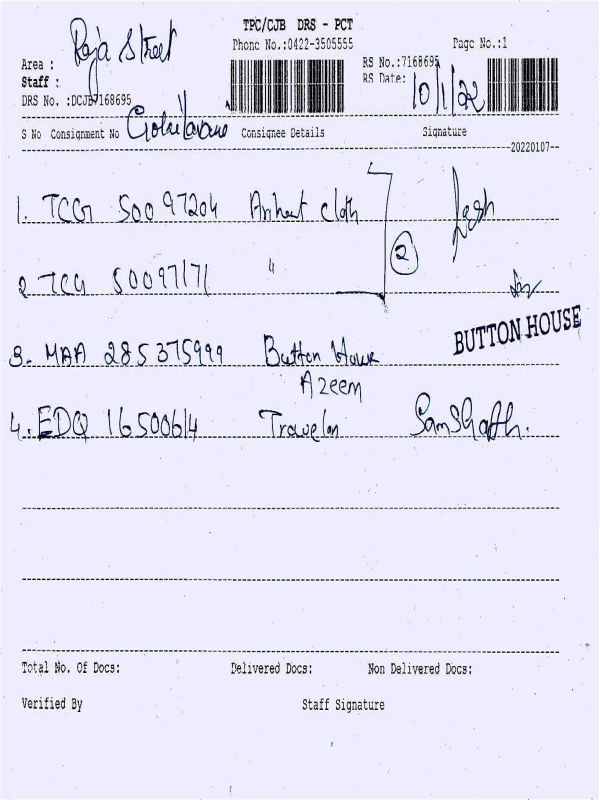 TPC/CJB DRS - PCT
Phone No.:0422-3505555
Page No.:1
Area : Raja Street
RS No.:7168695
Staff :
RS Date: 10/1/22
DRS No. :DCJB7168695
S No Consignment No Consignee Details Signature
20220107
1. TCG 50097204 cloth
2 TCG 50097171 "
2
BUTTON HOUSE
3. MAA 285375999 Button House
Azeem
4. EDQ 16500614
Total No. Of Docs: Delivered Docs: Non Delivered Docs:
Verified By Staff Signature